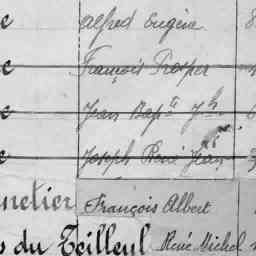 e Alfred Eugène 8
e François Prosper
e Jean Bap^te J^h
e Joseph René Jean 3
netier François Albert
s du Teilleul René Michel